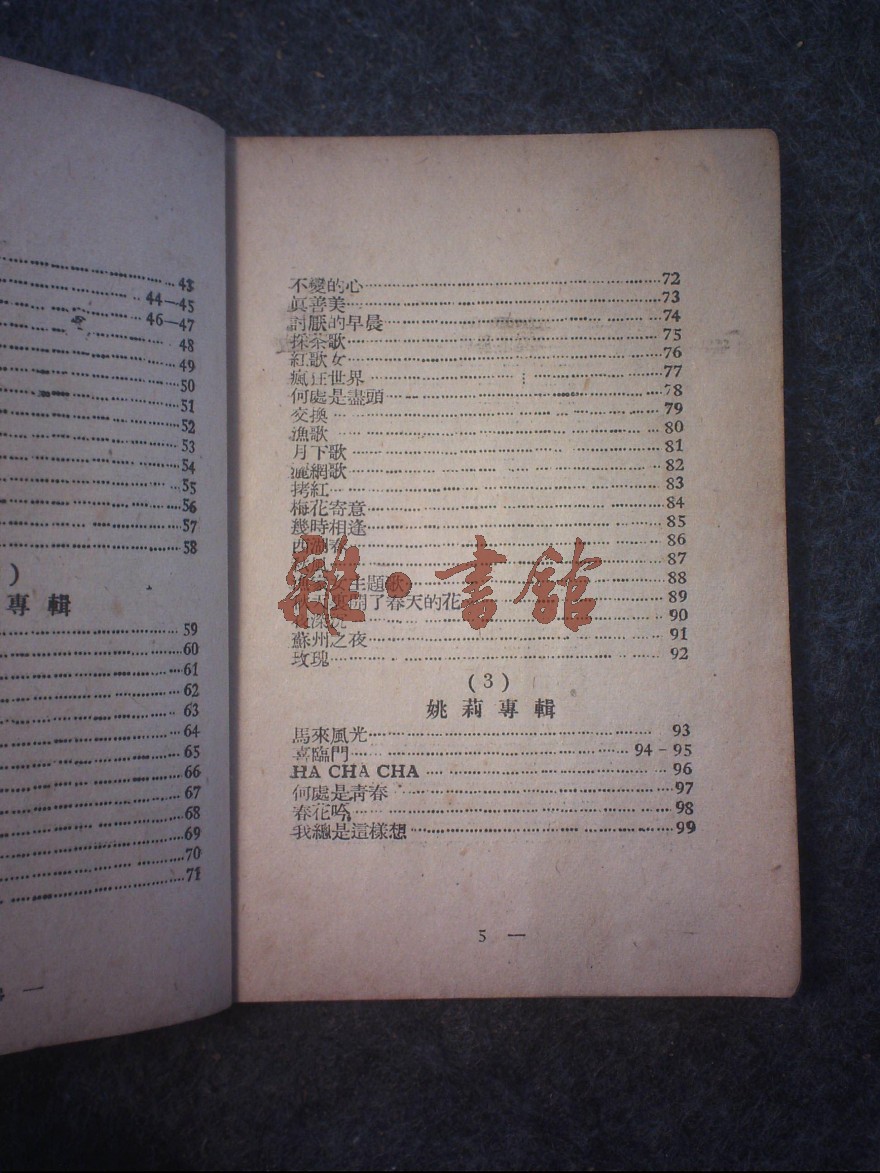 43
44—45
46—47
48
49
50
51
52
53
54
55
56
57
58
)
專輯
59
60
61
62
63
64
65
66
67
68
69
70
71
一
不變的心 72
眞善美 73
討厭的早晨 74
採茶歌 75
紅歌女 76
瘋狂世界 77
何處是盡頭 78
交換 79
漁歌 80
月下歌 81
灑網歌 82
拷紅 83
梅花寄意 84
幾時相逢 85
西湖春 86
87
女主題歌 88
開了春天的花 89
夜深沉 90
蘇州之夜 91
玫瑰 92
(3)
姚莉專輯
馬來風光 93
喜臨門 94－95
HA CHA CHA 96
何處是靑春 97
春花吟 98
我總是這樣想 99
5 一
雜·書館